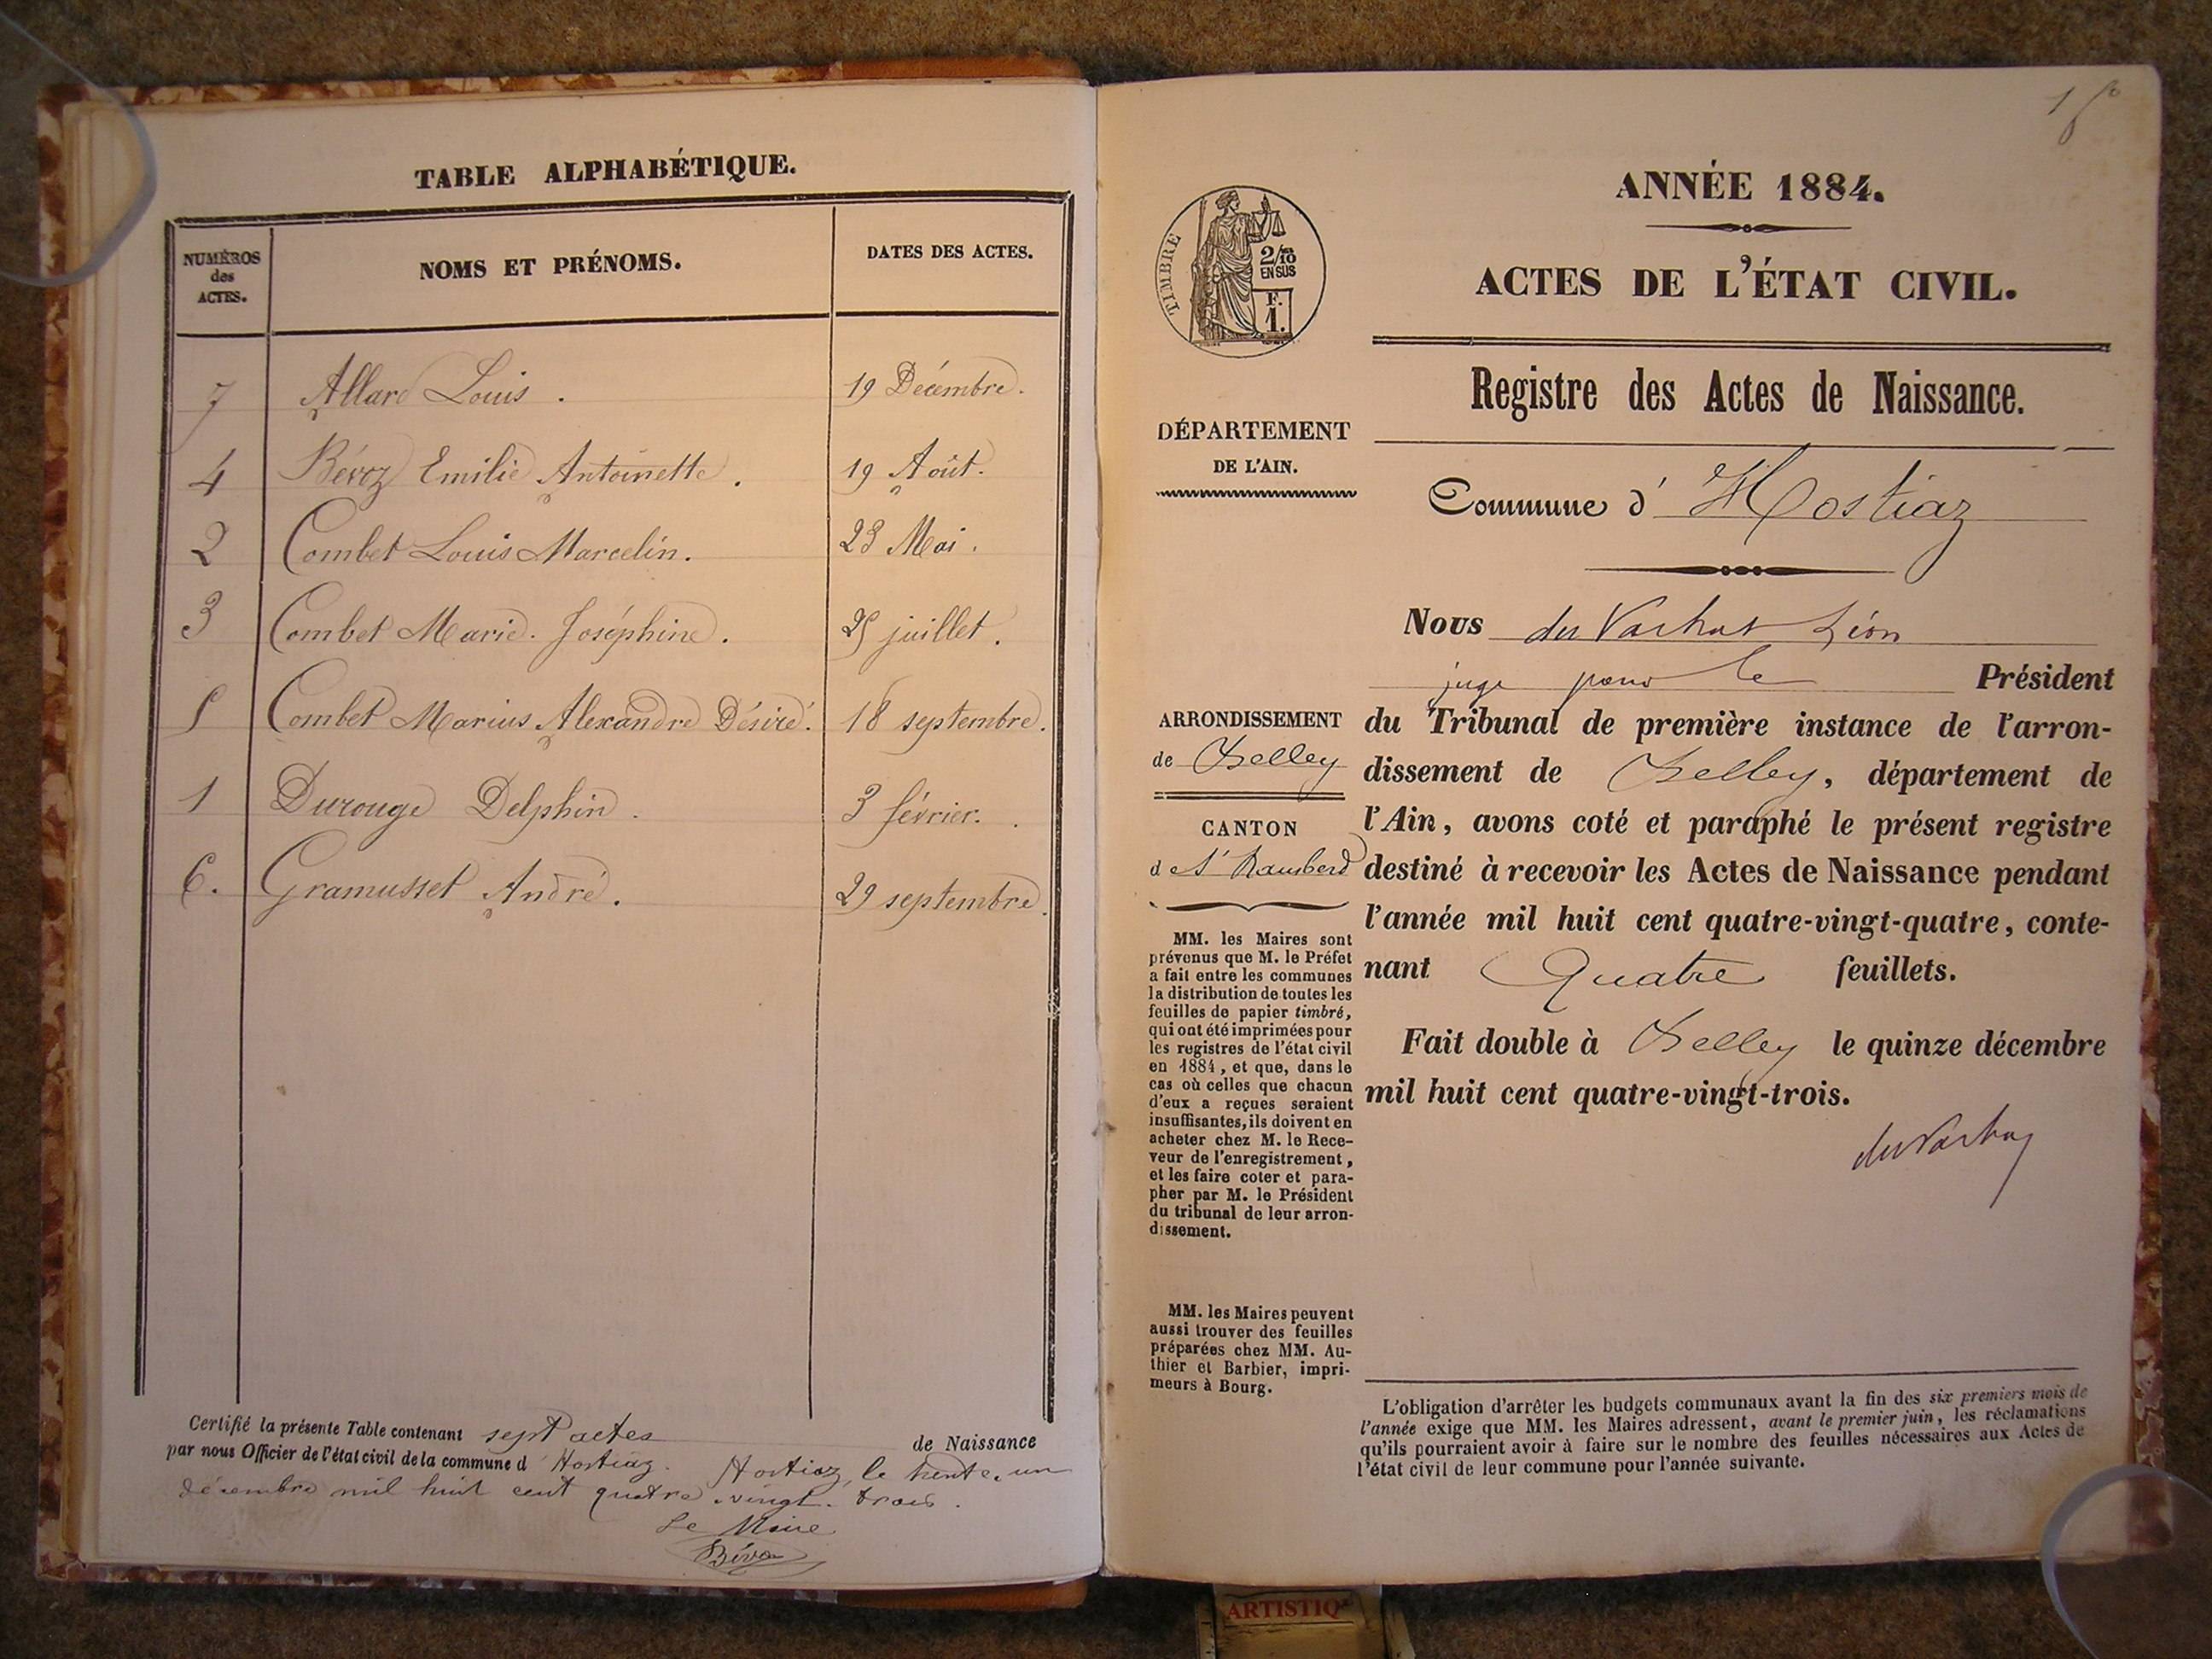 TABLE ALPHABÉTIQUE.
NUMÉROS
des
ACTES.
NOMS ET PRÉNOMS.
DATES DES ACTES.
7 Allard Louis . 19 Décembre.
4 Bévoz Emilie Antoinette . 19 Août.
2 Combet Louis Marcelin. 23 Mai .
3 Combet Marie. Joséphine . 25 juillet .
5 Combet Marius Alexandre Désiré. 18 septembre.
1 Durouge Delphin . 3 février.
6. Gramusset André . 29 septembre.
Certifié la présente Table contenant sept actes de Naissance
par nous Officier de l'état civil de la commune d'Hostiaz. Hostiaz, le trente-un
décembre mil huit cent quatre-vingt-trois.
Le Maire
Bévoz
1
ANNÉE 1884.
ACTES DE L'ÉTAT CIVIL.
TIMBRE
2/10
EN SUS
F.
1.
Registre des Actes de Naissance.
DÉPARTEMENT
DE L'AIN.
Commune d'Hostiaz
Nous Léon
juge pour le Président
du Tribunal de première instance de l'arron-
dissement de Belley, département de
l'Ain, avons coté et paraphé le présent registre
destiné à recevoir les Actes de Naissance pendant
l'année mil huit cent quatre-vingt-quatre, conte-
nant Quatre feuillets.
Fait double à Belley le quinze décembre
mil huit cent quatre-vingt-trois.
ARRONDISSEMENT
de Belley
CANTON
de St Rambert
MM. les Maires sont
prévenus que M. le Préfet
a fait entre les communes
la distribution de toutes les
feuilles de papier timbré,
qui ont été imprimées pour
les registres de l'état civil
en 1884, et que, dans le
cas où celles que chacun
d'eux a reçues seraient
insuffisantes, ils doivent en
acheter chez M. le Rece-
veur de l'enregistrement,
et les faire coter et para-
pher par M. le Président
du tribunal de leur arron-
dissement.
MM. les Maires peuvent
aussi trouver des feuilles
préparées chez MM. Au-
thier et Barbier, impri-
meurs à Bourg.
L'obligation d'arrêter les budgets communaux avant la fin des six premiers mois de
l'année exige que MM. les Maires adressent, avant le premier juin, les réclamations
qu'ils pourraient avoir à faire sur le nombre des feuilles nécessaires aux Actes de
l'état civil de leur commune pour l'année suivante.
ARTISTIQ